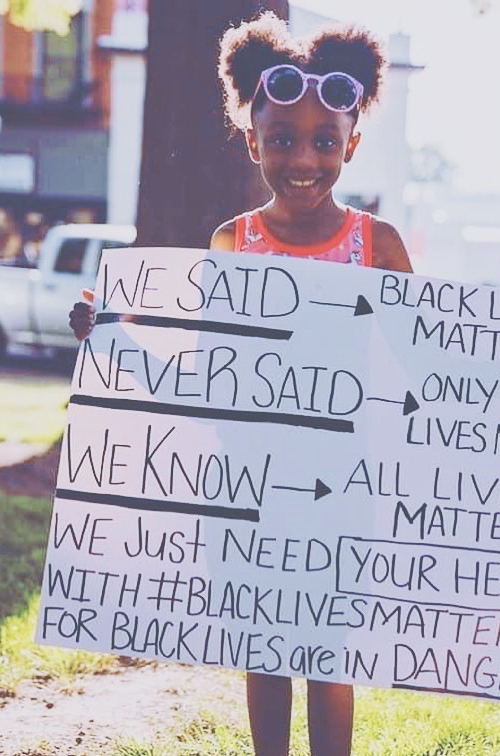 WE SAID → BLACK L
MATT
NEVER SAID → ONLY
LIVES
WE KNOW → ALL LIV
MATTE
WE JUSt NEED YOUR HE
WITH #BLACKLIVESMATTE
FOR BLACK LIVES are iN DANG